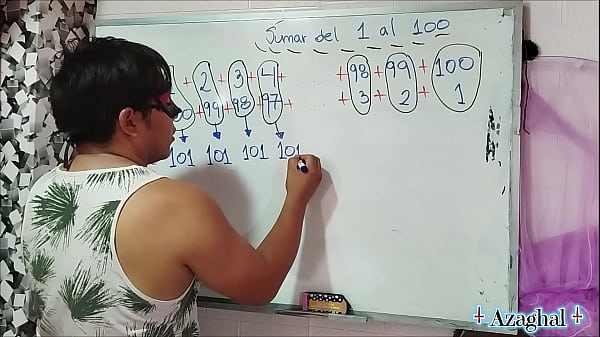 Sumar del 1 al 100
+ 2 + 3 + 4 + ...... + 98 + 99 + 100
+ 99 + 98 + 97 + ...... + 3 + 2 + 1
101 101 101 101
+ Azaghal +